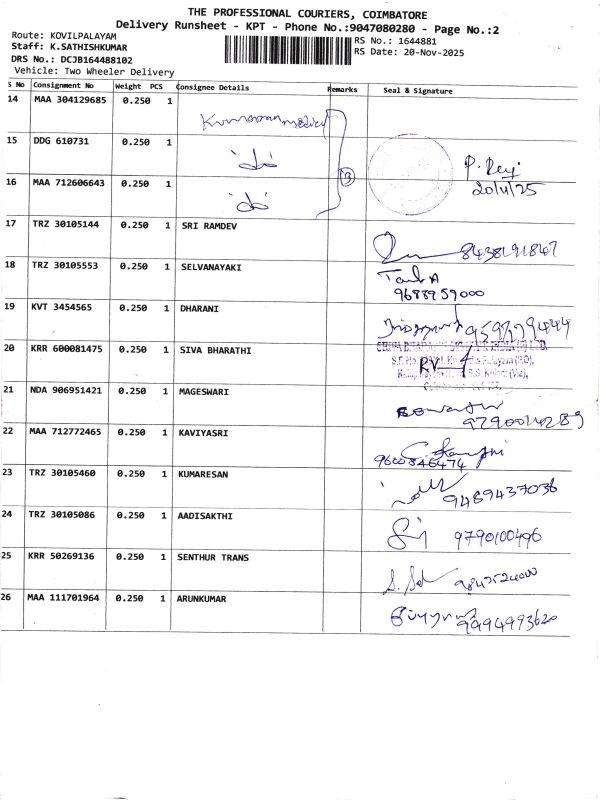 THE PROFESSIONAL COURIERS, COIMBATORE
Delivery Runsheet - KPT - Phone No.:9047080280 - Page No.:2
Route: KOVILPALAYAM
RS No.: 1644881
Staff: K.SATHISHKUMAR
RS Date: 20-Nov-2025
DRS No.: DCJB164488102
Vehicle: Two Wheeler Delivery
S No Consignment No Weight PCS Consignee Details Remarks Seal & Signature
14 MAA 304129685 0.250 1
15 DDG 610731 0.250 1
16 MAA 712606643 0.250 1
3
20/11/25
17 TRZ 30105144 0.250 1 SRI RAMDEV
8438191847
18 TRZ 30105553 0.250 1 SELVANAYAKI
9688959000
19 KVT 3454565 0.250 1 DHARANI
20 KRR 600081475 0.250 1 SIVA BHARATHI
RV
21 NDA 906951421 0.250 1 MAGESWARI
9790014289
22 MAA 712772465 0.250 1 KAVIYASRI
9600846474
23 TRZ 30105460 0.250 1 KUMARESAN
9489437036
24 TRZ 30105086 0.250 1 AADISAKTHI
9790100496
25 KRR 50269136 0.250 1 SENTHUR TRANS
26 MAA 111701964 0.250 1 ARUNKUMAR
9994993620